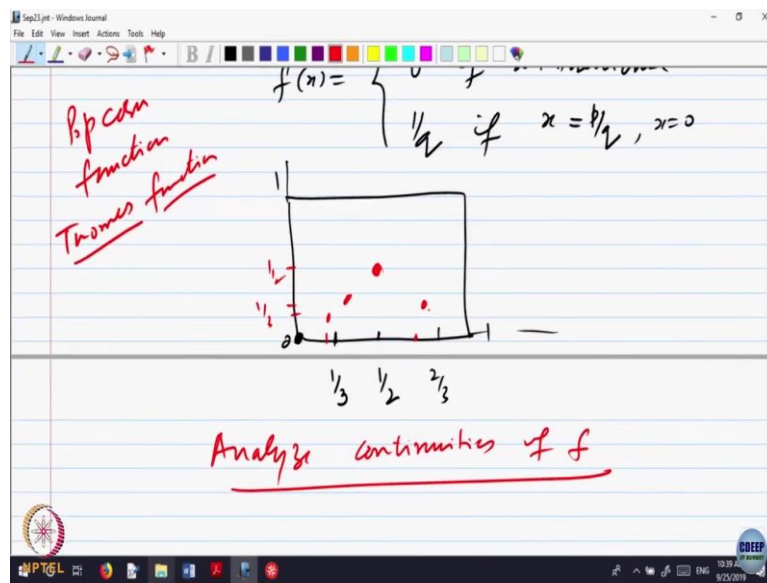 Sep23.jnt - Windows Journal
File Edit View Insert Actions Tools Help
B I
f(x) =
1/q if x = p/q, x=0
Popcorn
function
Thomes function
1
1/2
1/3
0
1
1/3 1/2 2/3
Analyze continuities of f
NPTEL
CDEEP
IIT BOMBAY
ENG
10:39 A
9/25/2019